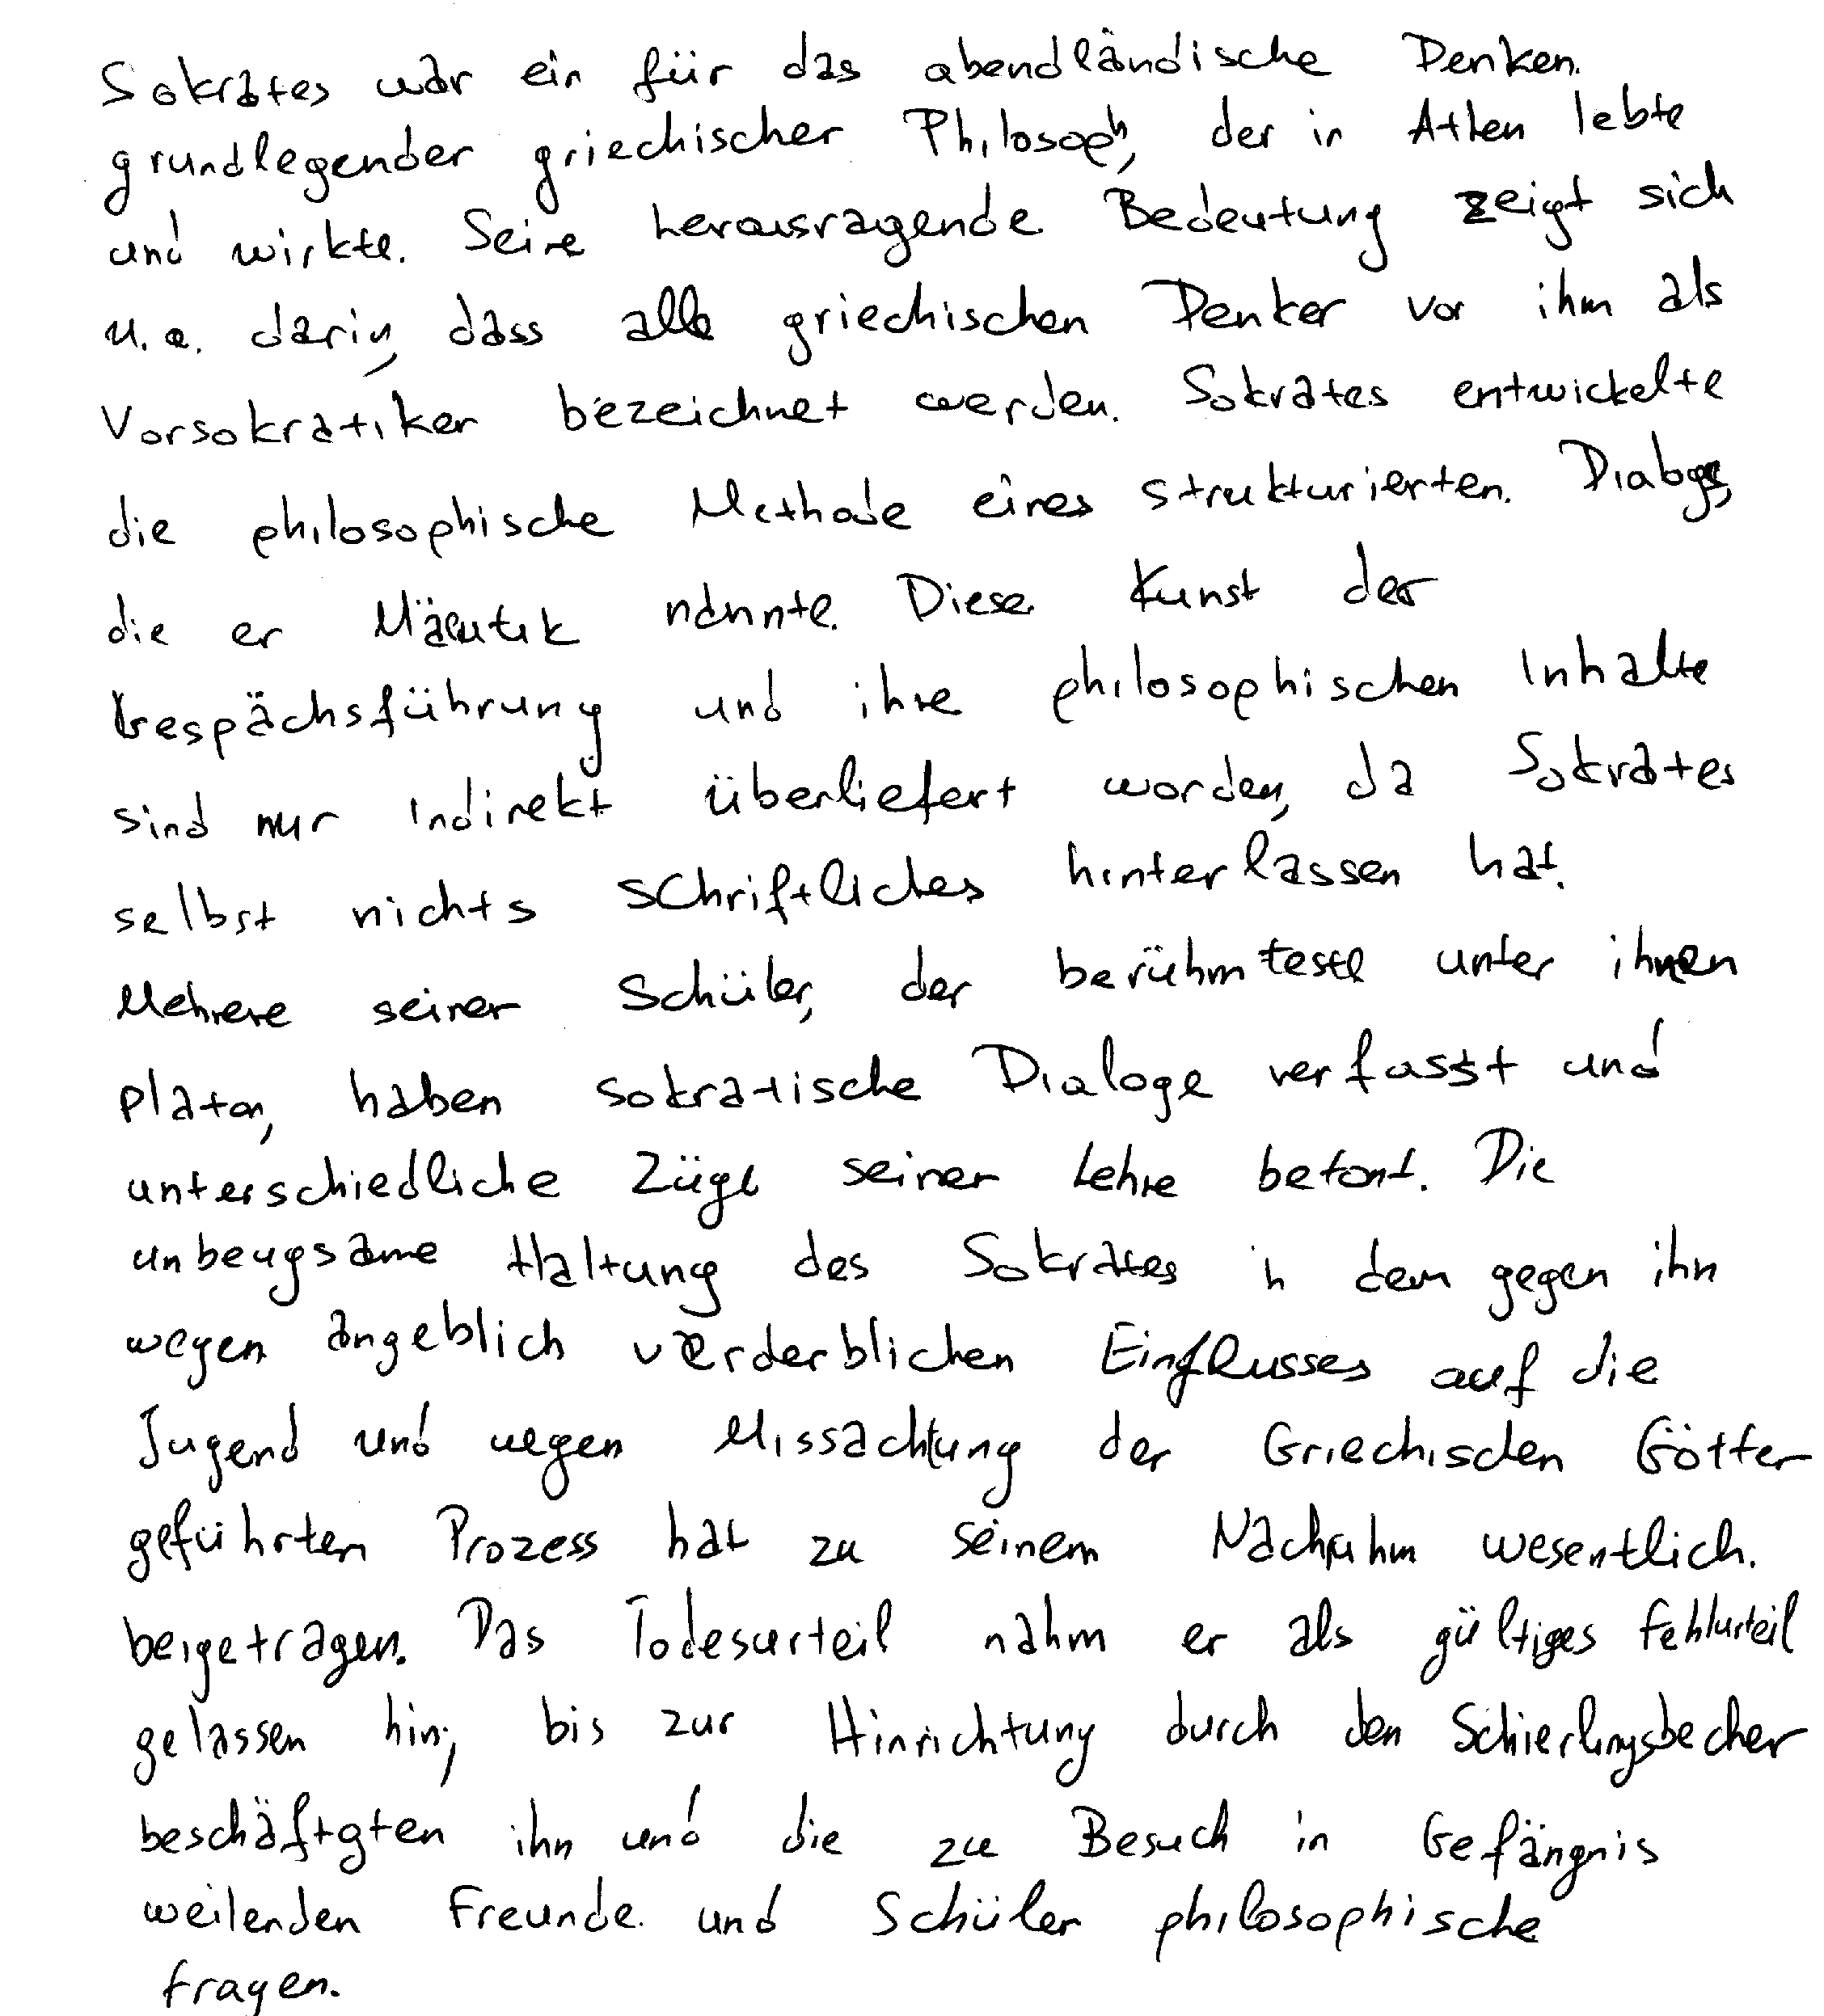 Sokrates war ein für das abendländische Denken
grundlegender griechischer Philosoph, der in Athen lebte
und wirkte. Seine herausragende Bedeutung zeigt sich
u.a. darin, dass alle griechischen Denker vor ihm als
Vorsokratiker bezeichnet werden. Sokrates entwickelte
die philosophische Methode eines strukturierten Dialogs,
die er Mäeutik nannte. Diese Kunst der
Gespächsführung und ihre philosophischen Inhalte
sind nur indirekt überliefert worden, da Sokrates
selbst nichts schriftliches hinterlassen hat.
Mehrere seiner Schüler, der berühmteste unter ihnen
Platon, haben sokratische Dialoge verfasst und
unterschiedliche Züge seiner Lehre betont. Die
unbeugsame Haltung des Sokrates in dem gegen ihn
wegen angeblich verderblichen Einflusses auf die
Jugend und wegen Missachtung der Griechischen Götter
geführten Prozess hat zu seinem Nachruhm wesentlich
beigetragen. Das Todesurteil nahm er als gültiges Fehlurteil
gelassen hin; bis zur Hinrichtung durch den Schierlingsbecher
beschäftgten ihn und die zu Besuch in Gefängnis
weilenden Freunde und Schüler philosophische
Fragen.